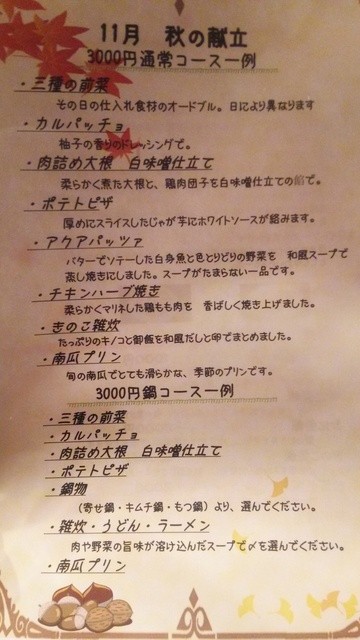 11月 秋の献立
3000円通常コース一例
・三種の前菜
その日の仕入れ食材のオードブル。日により異なります
・カルパッチョ
柚子の香りのドレッシングで。
・肉詰め大根 白味噌仕立て
柔らかく煮た大根と、鶏肉団子を白味噌仕立ての餡で。
・ポテトピザ
厚めにスライスしたじゃが芋にホワイトソースが絡みます。
・アクアパッツァ
バターでソテーした白身魚と色とりどりの野菜を 和風スープで
蒸し焼きにしました。スープがたまらない一品です。
・チキンハーブ焼き
柔らかくマリネした鶏もも肉を 香ばしく焼き上げました。
・きのこ雑炊
たっぷりのキノコと御飯を和風だしと卵でまとめました。
・南瓜プリン
旬の南瓜でとても滑らかな、季節のプリンです。
3000円鍋コース一例
・三種の前菜
・カルパッチョ
・肉詰め大根 白味噌仕立て
・ポテトピザ
・鍋物
（寄せ鍋・キムチ鍋・もつ鍋）より、選んでください。
・雑炊・うどん・ラーメン
肉や野菜の旨味が溶け込んだスープで〆を選んでください。
・南瓜プリン